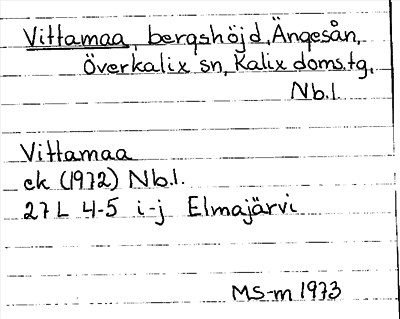 Vittamaa, bergshöjd, Ängesån,
Överkalix sn, Kalix doms.tg,
Nb.l.
Vittamaa
ek (1972) Nb.l.
27 L 4-5 i-j Elmajärvi
MS-m 1973